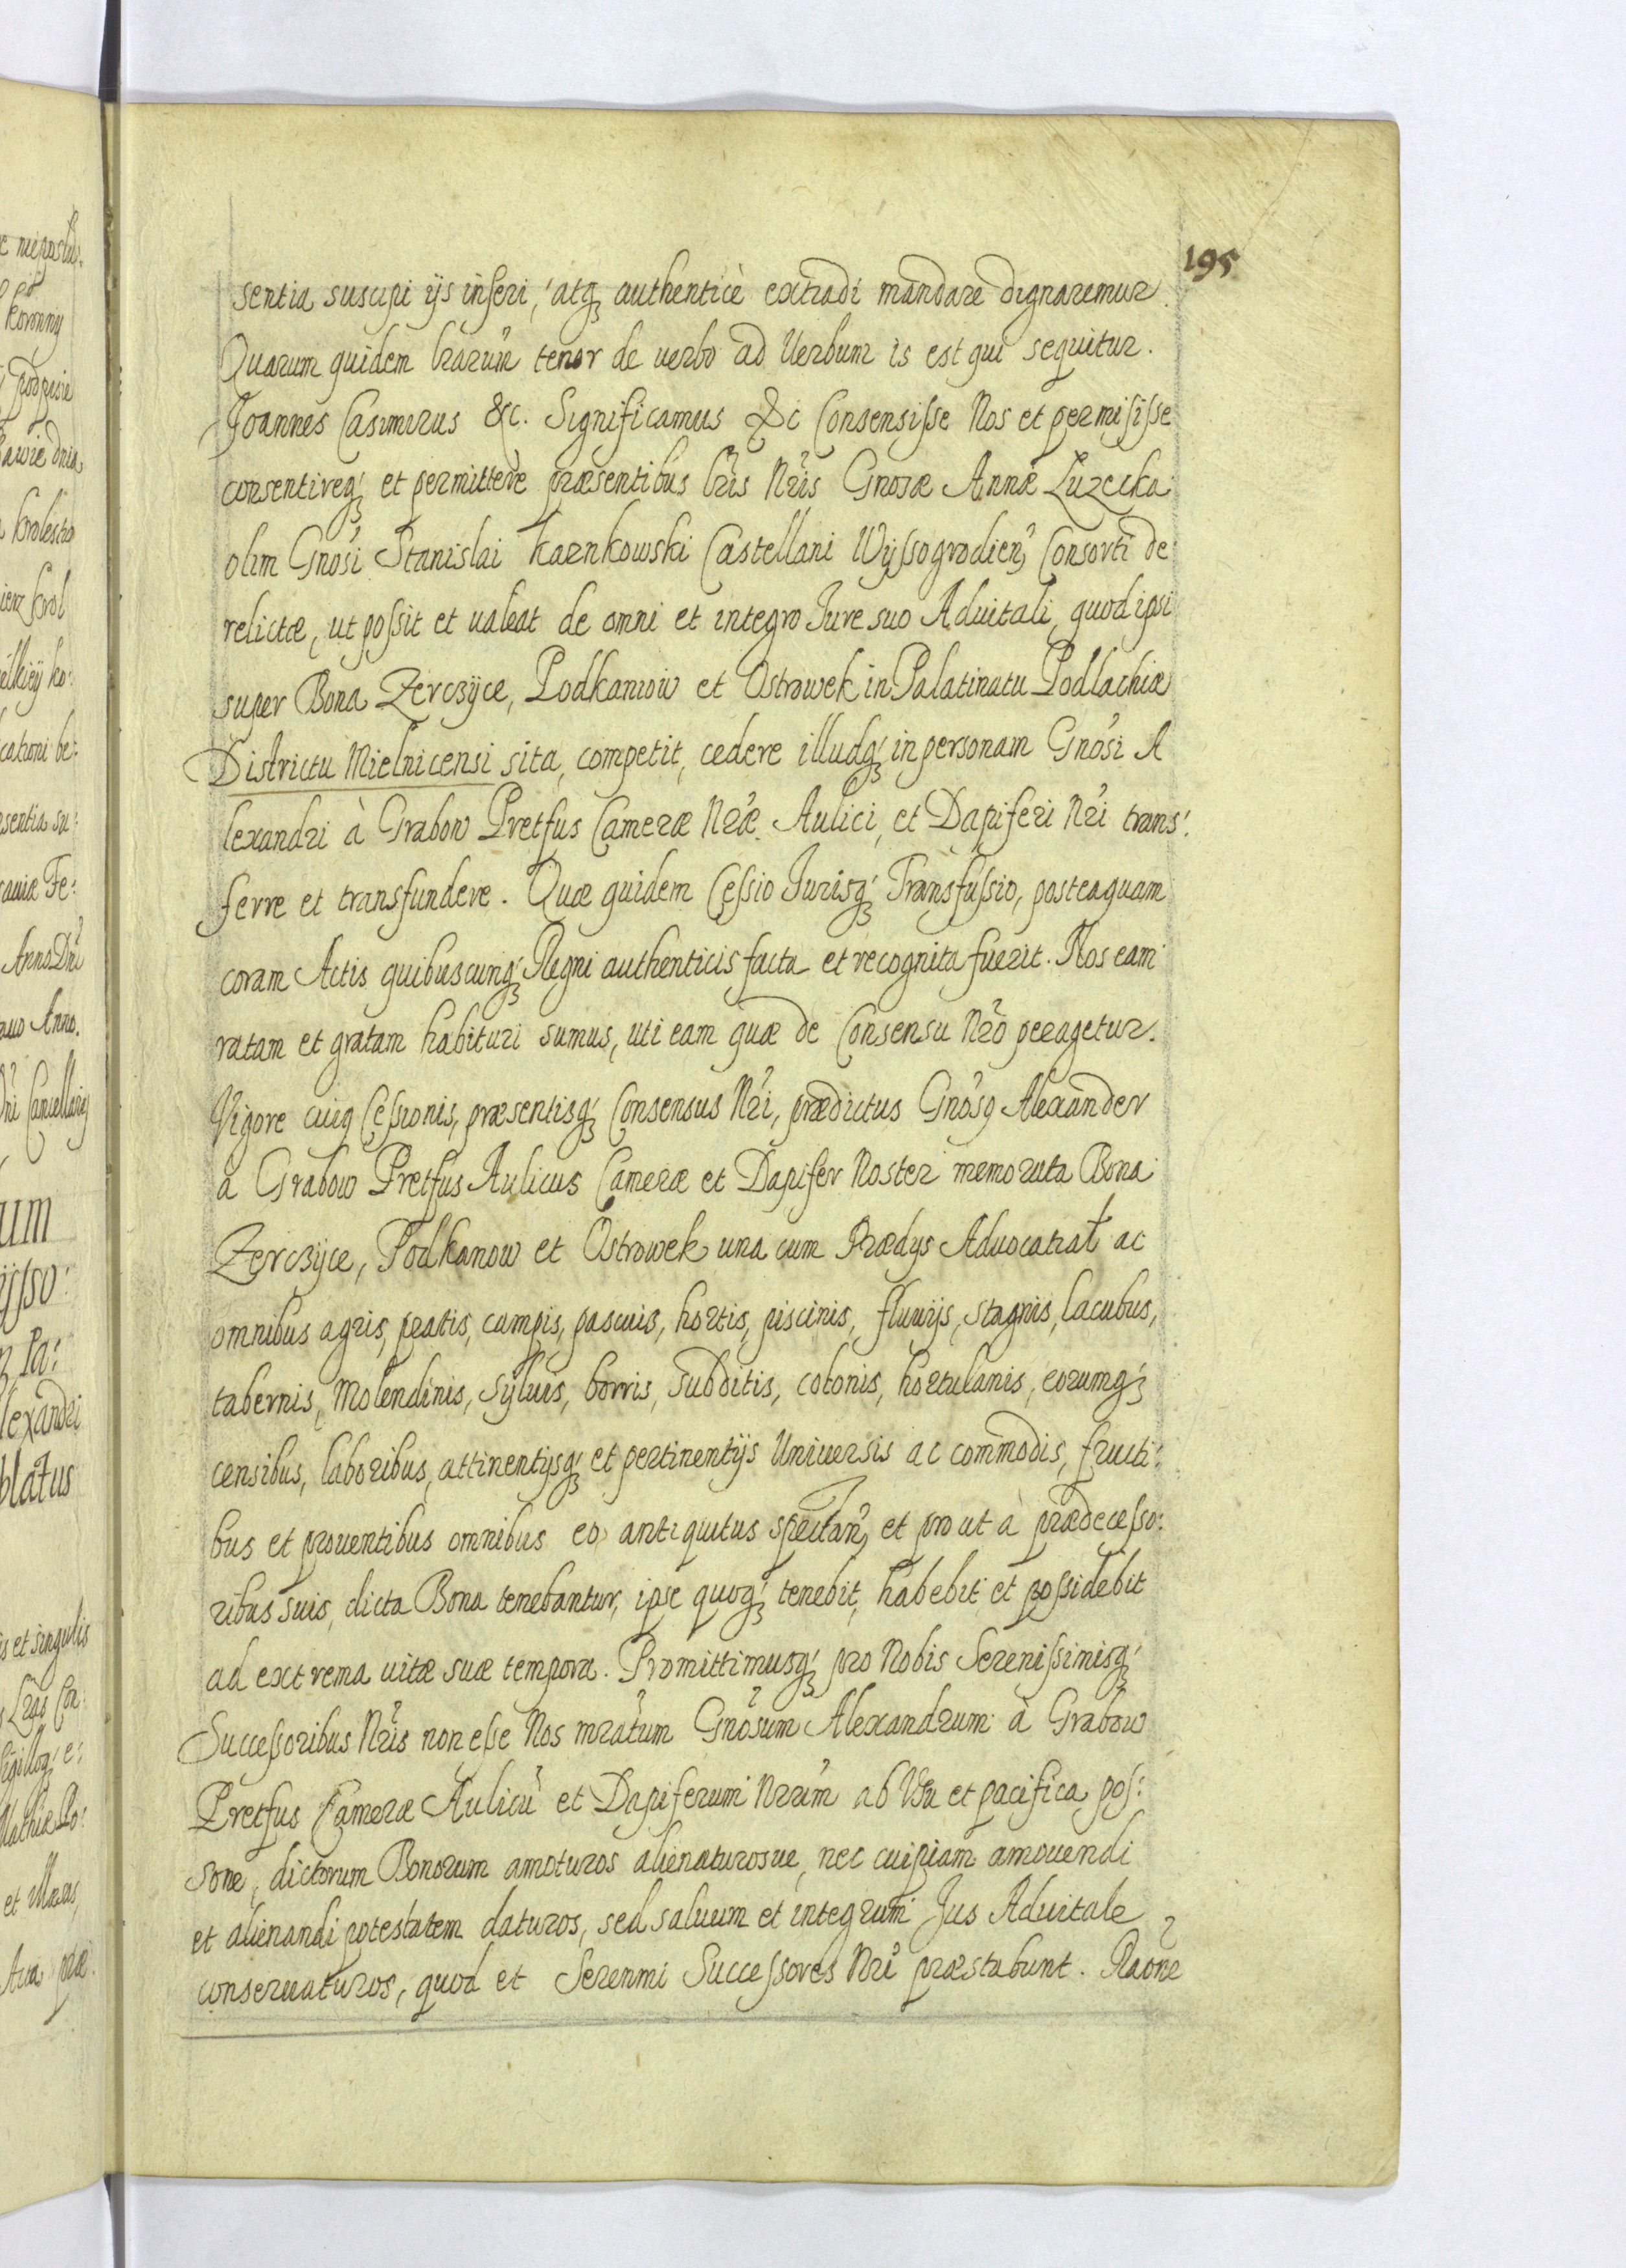 195
sentia suscipi ijs inseri, atq; authenticè extradi mandare dignaremur.
Quarum quidem lrarum̃ tenor de uerbo ad Uerbum is est qui sequitur.
Joannes Casimirus &c. Significamus &c Consensisse Nos et permisisse
consentireq; et permittere præsentibus lr̃is Nr̃is Gnosæ Annæ Luzecka
olim Gnosi Stanislai Karnkowski Castellani Wyssogrodien̄ Consorti de
relictæ, ut possit et ualeat de omni et integro Jure suo Aduitali, quod ipsi
super Bona Zerczyce, Podkaniow et Ostrowek in Palatinatu Podlachiæ
Districtu Mielnicensi sita, competit, cedere illudq; in personam Gnosi A
lexandri à Grabow Pretfus Cameræ Nræ Aulici, et Dapiferi Nri trans:
ferre et transfundere. Quæ quidem Cessio Jurisq; Transfussio, posteaquam
coram Actis quibuscunq; Regni authenticis facta et recognita fuerit. Nos eam
ratam et gratam habituri sumus, uti eam quæ de Consensu Nr̃o peragetur.
Vigore cuiq Cessionis, præsentisq; Consensus Nri, prædictus Gnosq Alexander
a Grabow Pretfus Aulicus Cameræ et Dapifer Noster memorata Bona
Zerczyce, Podkanow et Ostrowek una cum Prædys Aduocatiat ac
omnibus agris, pratis, campis, pascuis, hortis, piscinis, fluuijs, stagnis, lacubus,
tabernis, Molendinis, Syluis, borris, subditis, colonis, hortulanis, eorumq;
censibus, laboribus, attinentijsq; et pertinentijs Uniuersis ac commodis, fructi:
bus et prouentibus omnibus eo antiquitus spectan̄, et prout à prædecesso:
ribus suis, dicta Bona tenebantur, ipse quoq; tenebit, habebit et possidebit
ad extrema uitæ suæ tempora. Promittimusq; pro Nobis Serenissimisq;
Successoribus Nr̃is non esse Nos mratum Gnosum Alexandrum à Grabow
Pretfus Cameræ Aulicũ et Dapiferum Nrum̃ ab Usu et pacifica pos:
sone, dictorum Bonorum amoturos alienaturosue, nec cuipiam amouendi
et alienandi potestatem daturos, sed saluum et integrum Jus Aduitale
conseruaturos, quod et Serenmi Successores Nri præstabunt. Raone